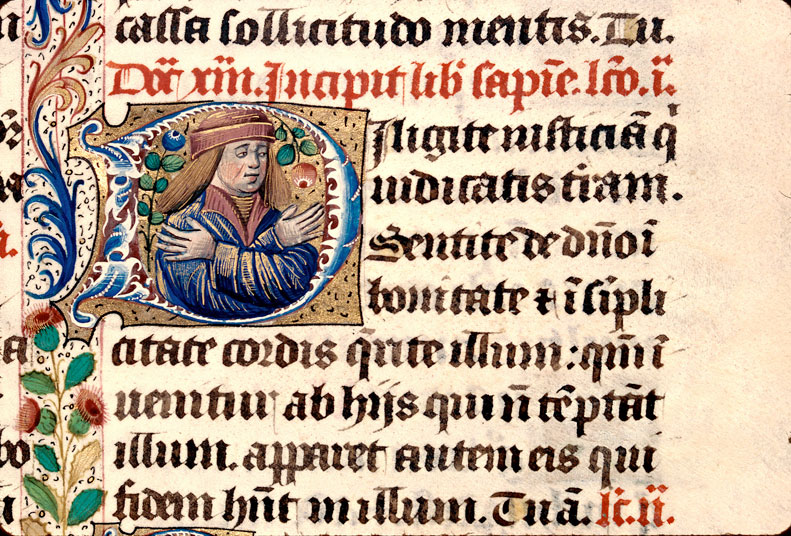 cassa sollicitudo mentis. Tu.
Do͞c xiiii. Incipit lib̄ sapīe. lc̄o. i.
Diligite iusticiā q
iudicatis t̄ram.
Sentite de dn̄o ī
bonitate ⁊ ī sīpli
citate cordis q̄rite illum: qm̄ ī
uenitur ab hijs qui n̄ tēptāt
illum. apparet autem eis qui
fidem hn̄t in illum. Tuā. lc̄. ii.